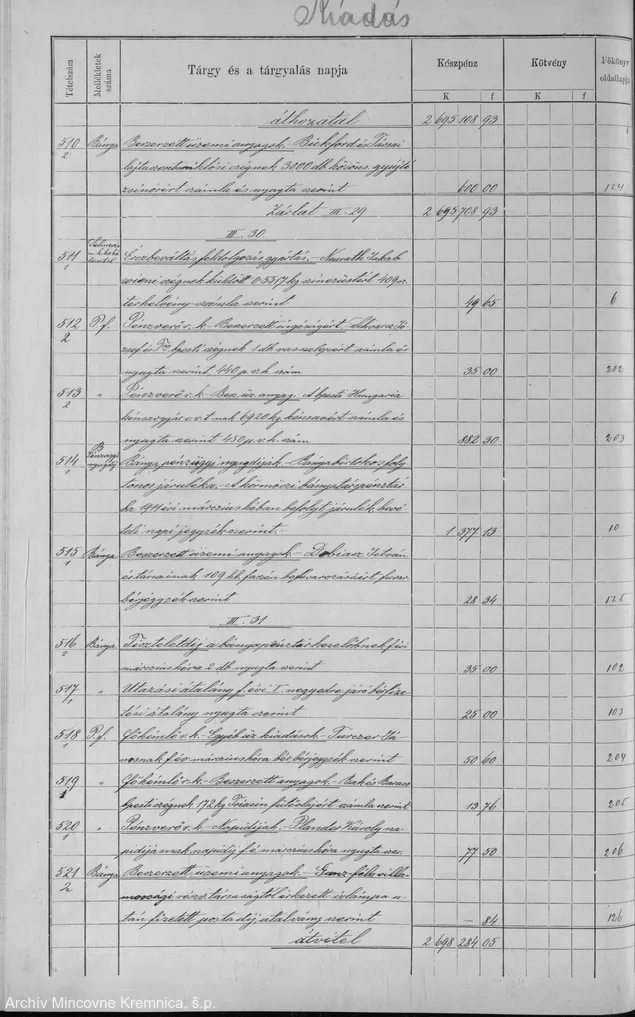 Kiadás
Tételszám
Mellékletek száma
Tárgy és a tárgyalás napja
Készpénz
Kötvény
Főkönyv oldallapja
K f K f
áthozatal 2 695 108 93
510/2 Bánya Beszerzett üzemi anyagok. Bickford és Társai
lajtaszentmiklósi cégnek 3000 db közöns. gyújtó
zsinórért számla és nyugta szerint 600 00 124
Zárlat III. 29 2 695 708 93
III. 30
511/1 Érczbeváltás, feldolgozás, gyártás. – Jakab
wieni cégnek küldött 0.5517 kg
térhetvény számla szerint 49 65 6
512/2 P.f. Pénzverő r. k. Beszerzett
1 db számla és
nyugta szerint 440 p. v. h. szám 35 00 202
513/2 " Pénzverő r. k. Besz. üz. anyag. A bpesti Hungaria
kénsavgyár r. v. t. nak 6920 kg kénsavért számla és
nyugta szerint 450 p. v. h. szám 882 30 203
514/1 Bány. pénzügyi nyugdíjak – Bányabirtokos foly
tonos járuléka. – A körmöczi bánya pénztár
ba 1914 évi márczius hóban befolyt járulék bevé
teli napi jegyzék szerint. – 1 377 13 10
515/1 Bánya Beszerzett üzemi anyagok. – Dobiasz István
és társainak 109 fuvar
bérjegyzék szerint 28 34 125
III. 31
516/2 Bánya Tiszteletdíj a bányapénztár kezelőknek f. évi
márczius hóra 2 db nyugta szerint 35 00 102
517/1 " Utazási átalány f. évi I. negyedre járó bérfize-
tési átalány nyugta szerint 25 00 103
518/1 P.f. Főkémlő r. k. – Egyéb üz. kiadások. – Turczer Já-
nosnak f. év márczius hóra bér bérjegyzék szerint 50 60 204
519/1 " Főkémlő r. k. – Beszerzett anyagok. –
bpesti cégnek 172 kg számla szerint 13 76 205
520/1 " Pénzverő r. k. – Napidíjak. – Károly na-
pidíjasnak napidíj f. é. márczius hóra nyugta szer. 77 50 206
521/2 Bánya Beszerzett üzemi anyagok. – Ganz-féle villa-
mossági részvtársaságtól érkezett ívlámpa u-
tán fizetett posta díj utalvány szerint – 84 126
átvitel 2 698 284 05
Archív Mincovne Kremnica, š.p.